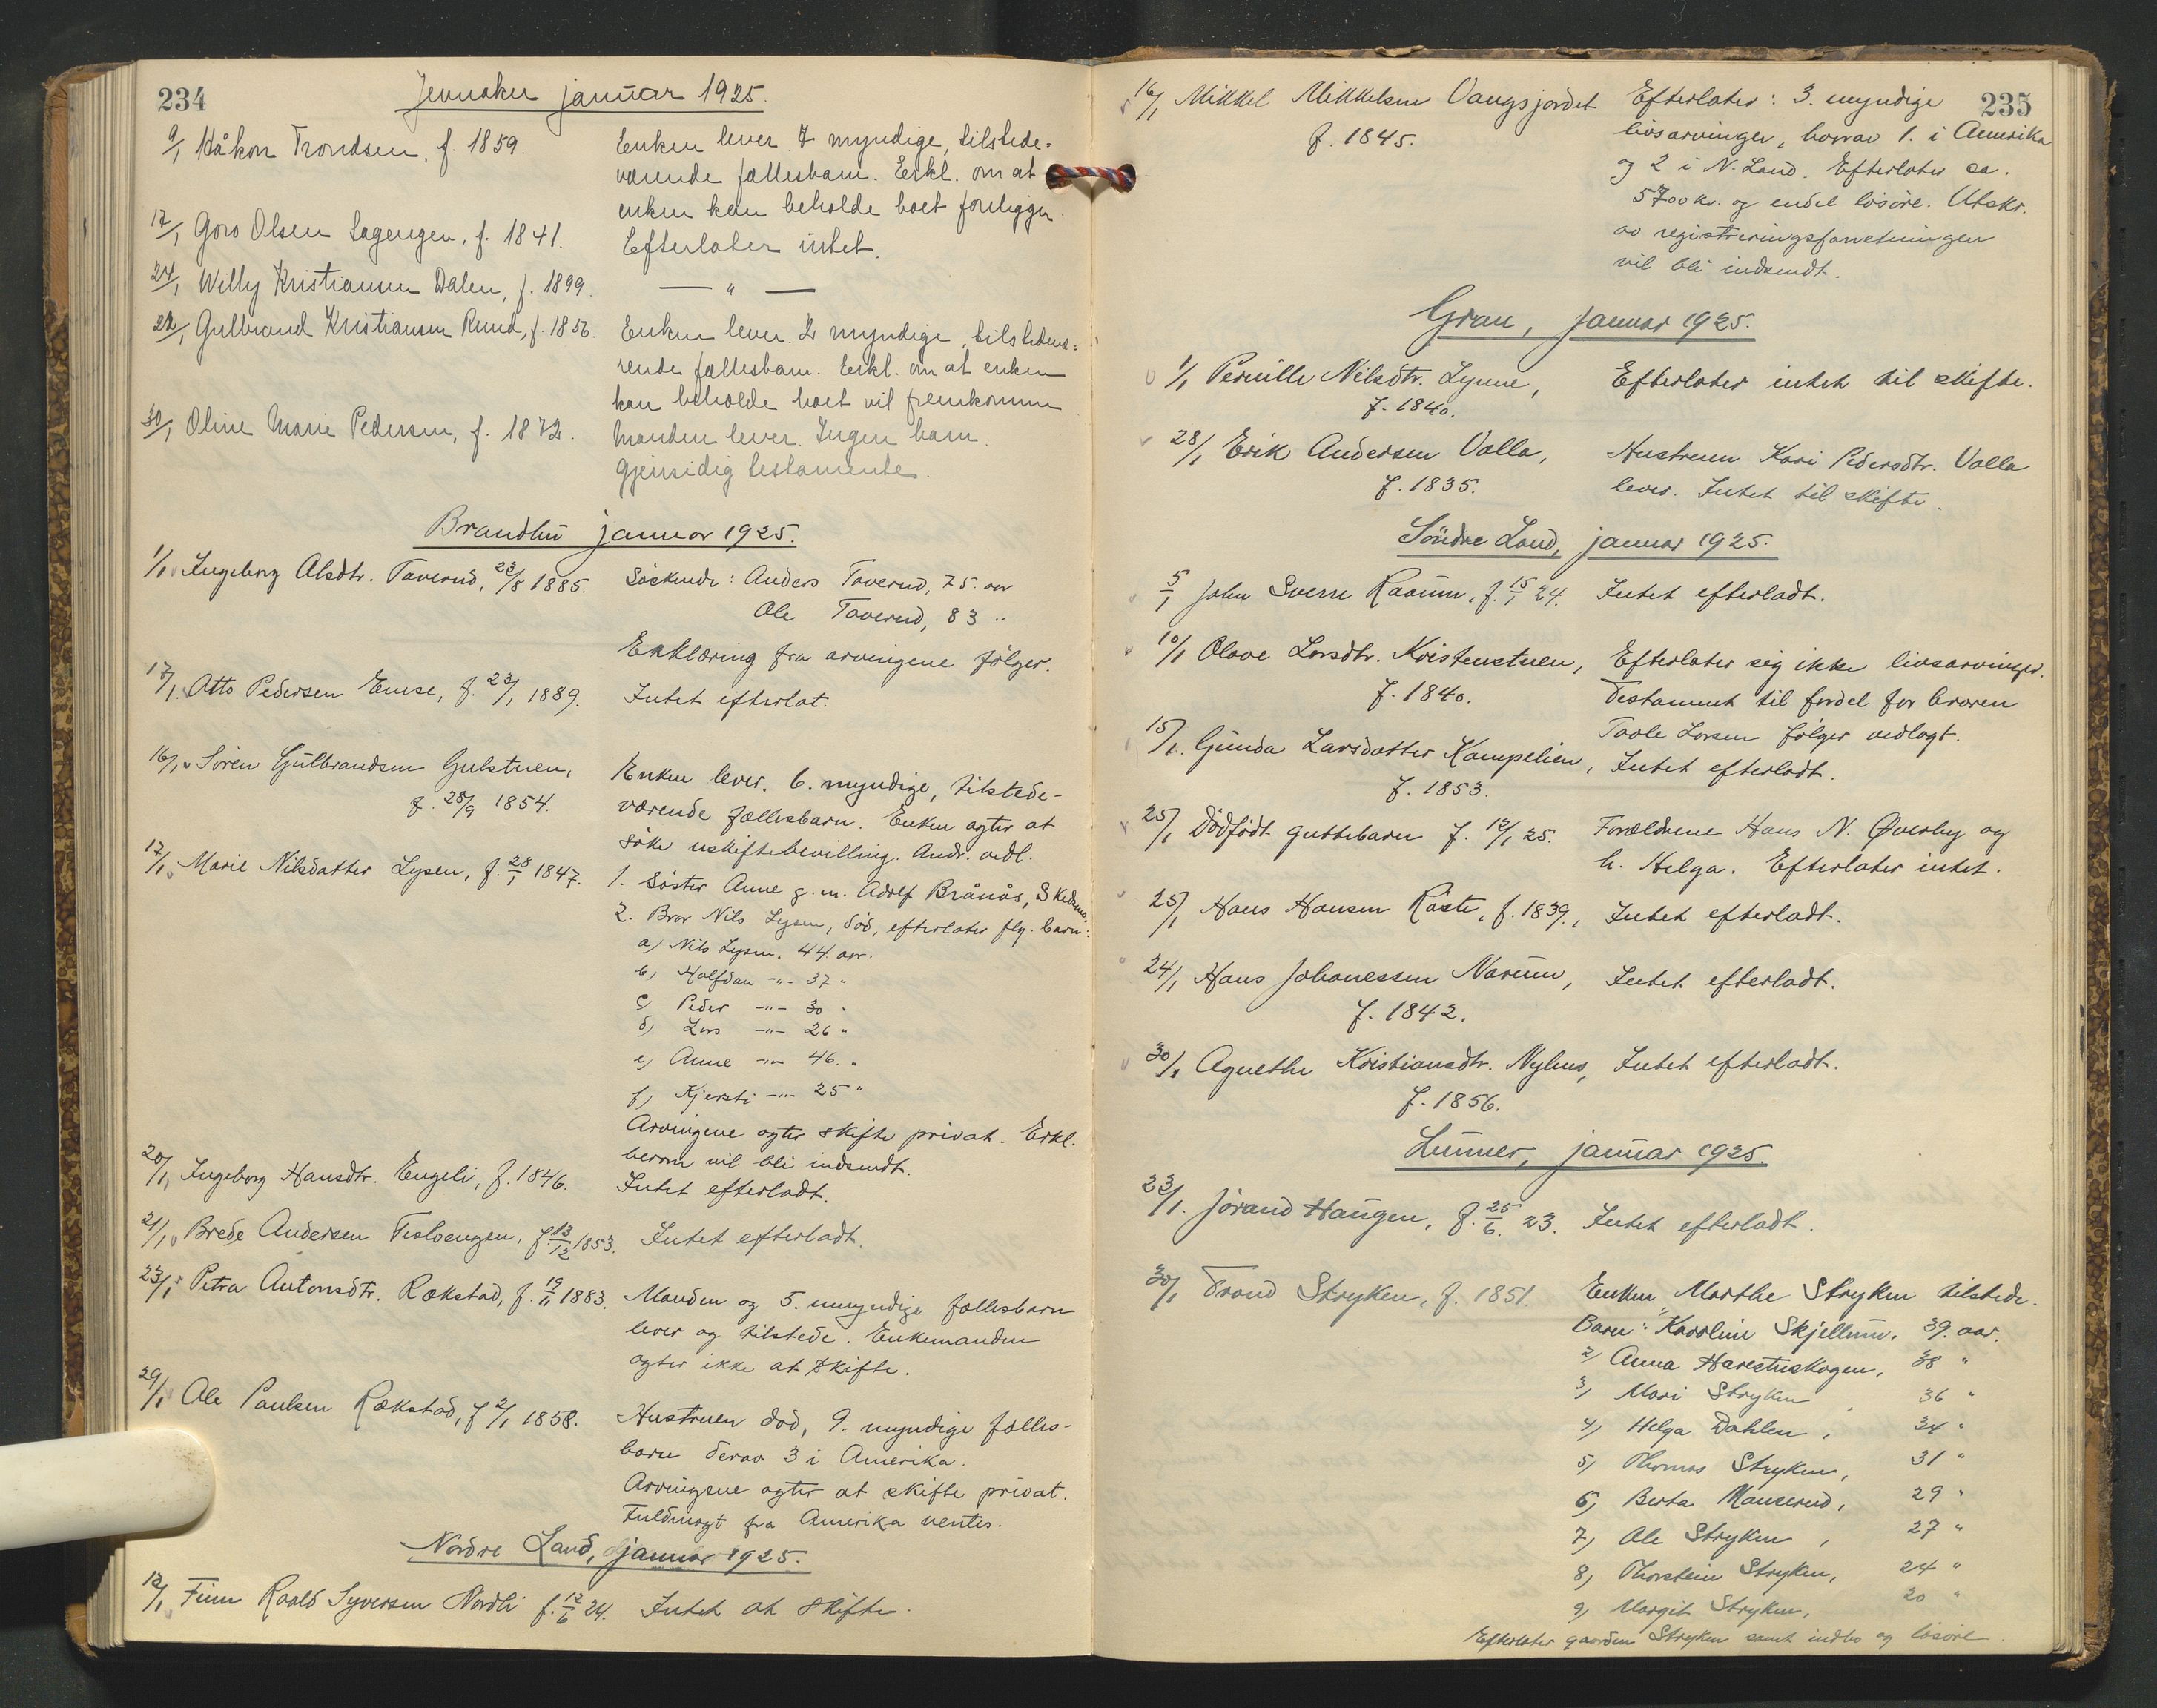 234
Jevnaker januar 1925.
9/1 Håkon Trondsen, f. 1859. Enken lever. 7 myndige, tilstede=
værende fællesbarn. Erkl. om at
enken kan beholde boet foreligger.
17/1 Goro Olsen Hagengen, f. 1841. Efterlater intet.
24/1 Willy Kristiansen Dalen, f. 1899. — " —
22/1 Gulbrand Kristiansen Rund, f. 1856. Enken lever. 2 myndige, tilstedevæ=
rende fællesbarn. Erkl. om at enken
kan beholde boet vil fremkomme
30/1 Oline Marie Pedersen, f. 1872. Manden lever. Ingen barn.
Gjensidig testamente.
Brandbu januar 1925.
1/1 Ingeborg Olsdtr. Taverud, 23/8 1885. Søskende: Anders Taverud, 75. aar
Ole Taverud, 83 "
Erklæring fra arvingene følger.
17/1 Otto Pedersen Emse, f. 23/1 1889. Intet efterlat.
16/1 Søren Gulbrandsen Gulstuen, Enken lever. 6. myndige, tilstede-
f. 28/9 1854. værende fællesbarn. Enken agter at
søke uskiftebevilling. Andr. vedl.
17/1 Marie Nilsdatter Lysen, f. 28/1 1847. 1. Søster Anne g. m. Adolf Brånås, Skedsmo.
2. Bror Nils Lysen, død, efterlater flg. barn:
a) Nils Lysen, 44 aar.
b) Halfdan -"- 37 "
c) Peder -"- 30 "
d) Lars -"- 26 "
e) Anne -"- 46. "
f) Kjersti -"- 25 "
Arvingene agter skifte privat. Erkl.
herom vil bli indsendt.
20/1 Ingeborg Hansdtr. Engeli, f. 1846. Intet efterladt.
21/1 Brede Andersen Tesloengen, f. 13/12 1853. Intet efterladt.
23/1 Petra Antonsdtr. Rækstad, f. 19/11 1883. Manden og 5. umyndige fællesbarn
lever og tilstede. Enkemanden
agter ikke at skifte.
29/1 Ole Paulsen Rækstad, f. 2/1 1858. Hustruen død, 9. myndige fælles-
barn derav 3 i Amerika.
Arvingene agter at skifte privat.
Fuldmagt fra Amerika ventes.
Nordre Land, januar 1925.
12/1 Finn Roald Syversen Nordli f. 12/6 24. Intet at skifte.
235
16/1 Mikkel Mikkelsen Vangsjordet Efterlater: 3. myndige
f. 1845. livsarvinger, hvorav 1. i Amerika
og 2 i N. Land. Efterlater ca.
5700 kr. og endel løsøre. Utskr.
av registreringsforretningen
vil bli indsendt.
Gran, januar 1925.
1/1 Pernille Nilsdtr. Lynne, Efterlater intet til skifte.
f. 1840.
28/1 Erik Andersen Valla, Hustruen Kari Pedersdtr. Valla
f. 1835. lever. Intet til skifte.
Søndre Land, januar 1925.
5/1 John Sverre Raaum, f. 15/1 24. Intet efterladt.
10/1 Olave Larsdtr. Kristenstuen, Efterlater sig ikke livsarvinger.
f. 1840. Testament til fordel for broren
Taale Larsen følger vedlagt.
15/1. Gunda Larsdatter Kampelien, Intet efterladt.
f. 1853.
25/1 Dødfødt guttebarn f. 12/1 25. Forældrene Hans N. Øverby og
h. Helga. Efterlater intet.
25/1 Hans Hansen Røste, f. 1839, Intet efterladt.
24/1 Hans Johanessen Narum, Intet efterladt.
f. 1842.
30/1 Agnethe Kristiansdtr. Nyhus, Intet efterladt.
f. 1856.
Lunner, januar 1925.
23/1. Jørand Haugen, f. 25/6. 23. Intet efterladt.
30/1 Trond Stryken, f. 1851. Enken Marthe Stryken tilstede.
Barn: 1) Karoline Skjellum, 39. aar.
2) Anna Harestuskogen, 38 "
3) Mari Stryken, 36 "
4) Helga Dahlen, 34 "
5) Thomas Stryken, 31 "
6) Berta Manserud, 29 "
7) Ole Stryken, 27 "
8) Thorstein Stryken, 24 "
9) Margit Stryken, 20 "
Efterlater gaarden Stryken samt indbo og løsøre.